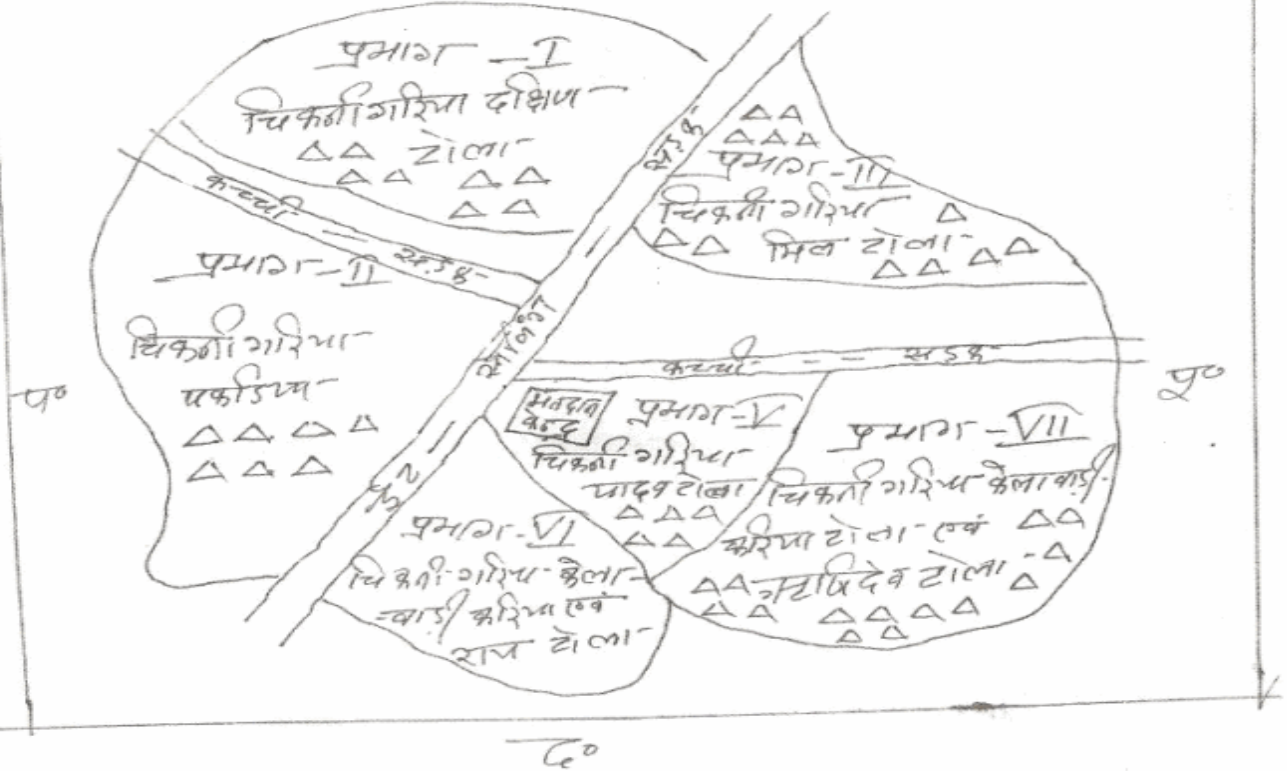 प्रभाग - I
चिकनी गरिया दक्षिण
टोला
सड़क
प्रभाग - III
चिकनी गरिया
मिल टोला
कच्ची सड़क
प्रभाग - II
चिकनी गरिया
पकडिया
कच्ची सड़क
प०
पू०
मतदान
केन्द्र
प्रभाग - V
चिकनी गरिया
यादव टोला
प्रभाग - VII
चिकनी गरिया कैलाबाड़ी
करिया टोला एवं
ऋषिदेव टोला
प्रभाग - VI
चिकनी गरिया कैला
बाड़ी करिया एवं
राय टोला
द०